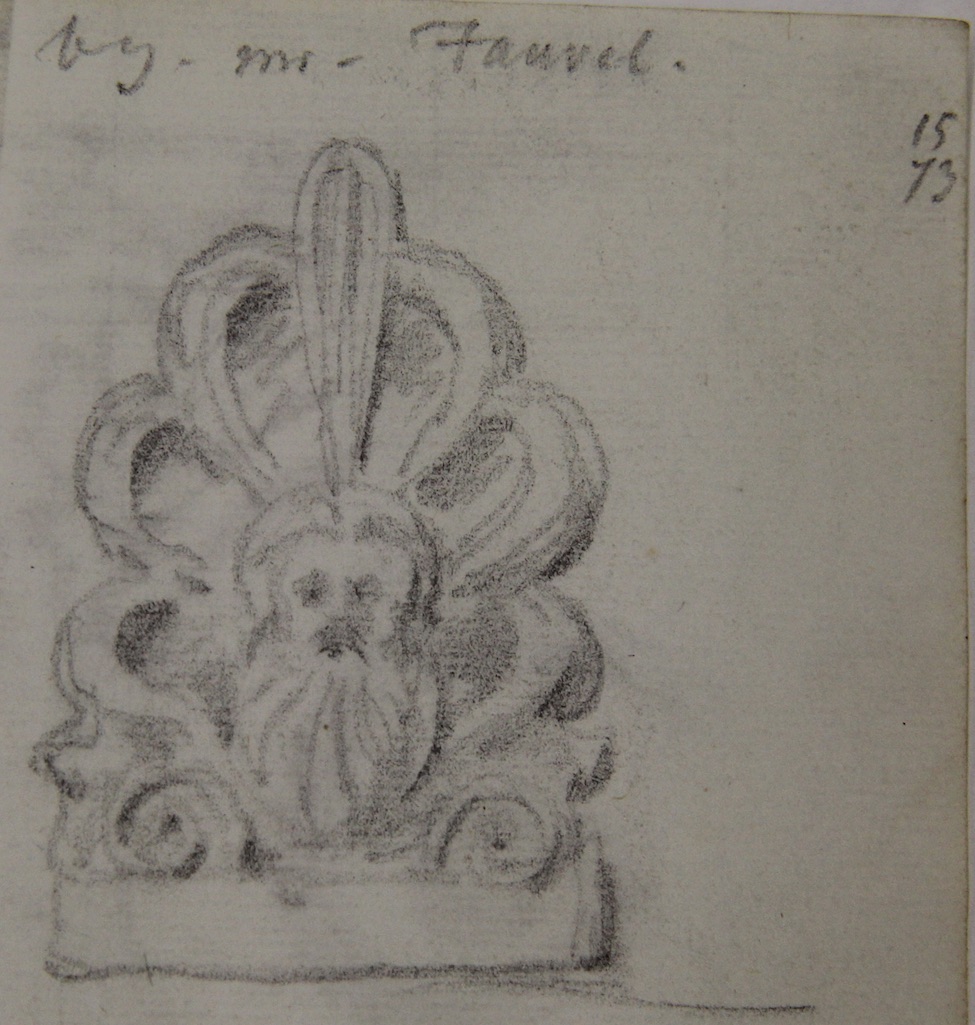 by. mr. Fauvel.
15
73